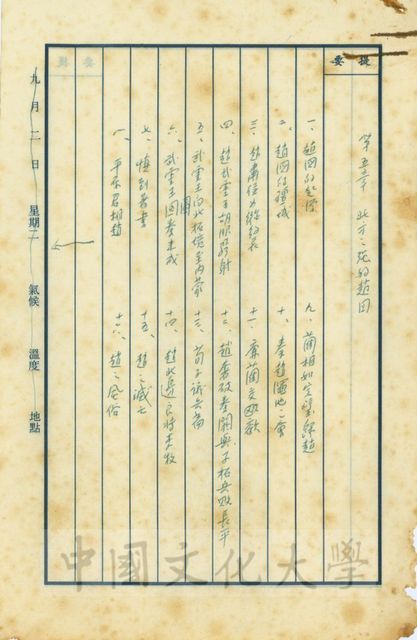 提要
第五章 北方之強的趙國
一、趙國的起源
二、趙國的疆域
三、趙肅侯為縱約長
四、趙武靈王胡服騎射
五、武靈王向北拓境至內蒙
六、武靈王圖秦未成
七、慎到著書
八、平原君相趙
九、藺相如完璧歸趙
十、秦趙澠池之會
十一、廉藺交歡
十二、趙奢破秦閼與子括兵敗長平
十三、荀子議兵
十四、趙北邊良將李牧
十五、趙之滅亡
十六、趙之風俗
九月二日 星期二 氣候 溫度 地點
中國文化大學